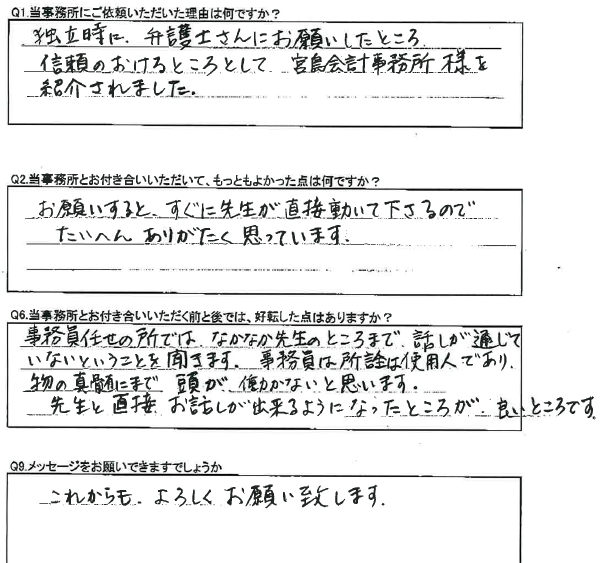 Q1.当事務所にご依頼いただいた理由は何ですか？
独立時に、弁護士さんにお願いしたところ
信頼のおけるところとして 宮島会計事務所 様を
紹介されました。
Q2.当事務所とお付き合いいただいて、もっともよかった点は何ですか？
お願いすると、すぐに先生が直接動いて下さるので
たいへん ありがたく 思っています。
Q6.当事務所とお付き合いいただく前と後では、好転した点はありますか？
事務員任せの所では、なかなか先生のところまで、話しが通じて
いないということを聞きます。 事務員は所詮は使用人であり、
物の真髄にまで 頭が、働かないと思います。
先生と 直接 お話しが出来るようになったところが、良いところです。
Q9.メッセージをお願いできますでしょうか
これからも、よろしく お願い致します。